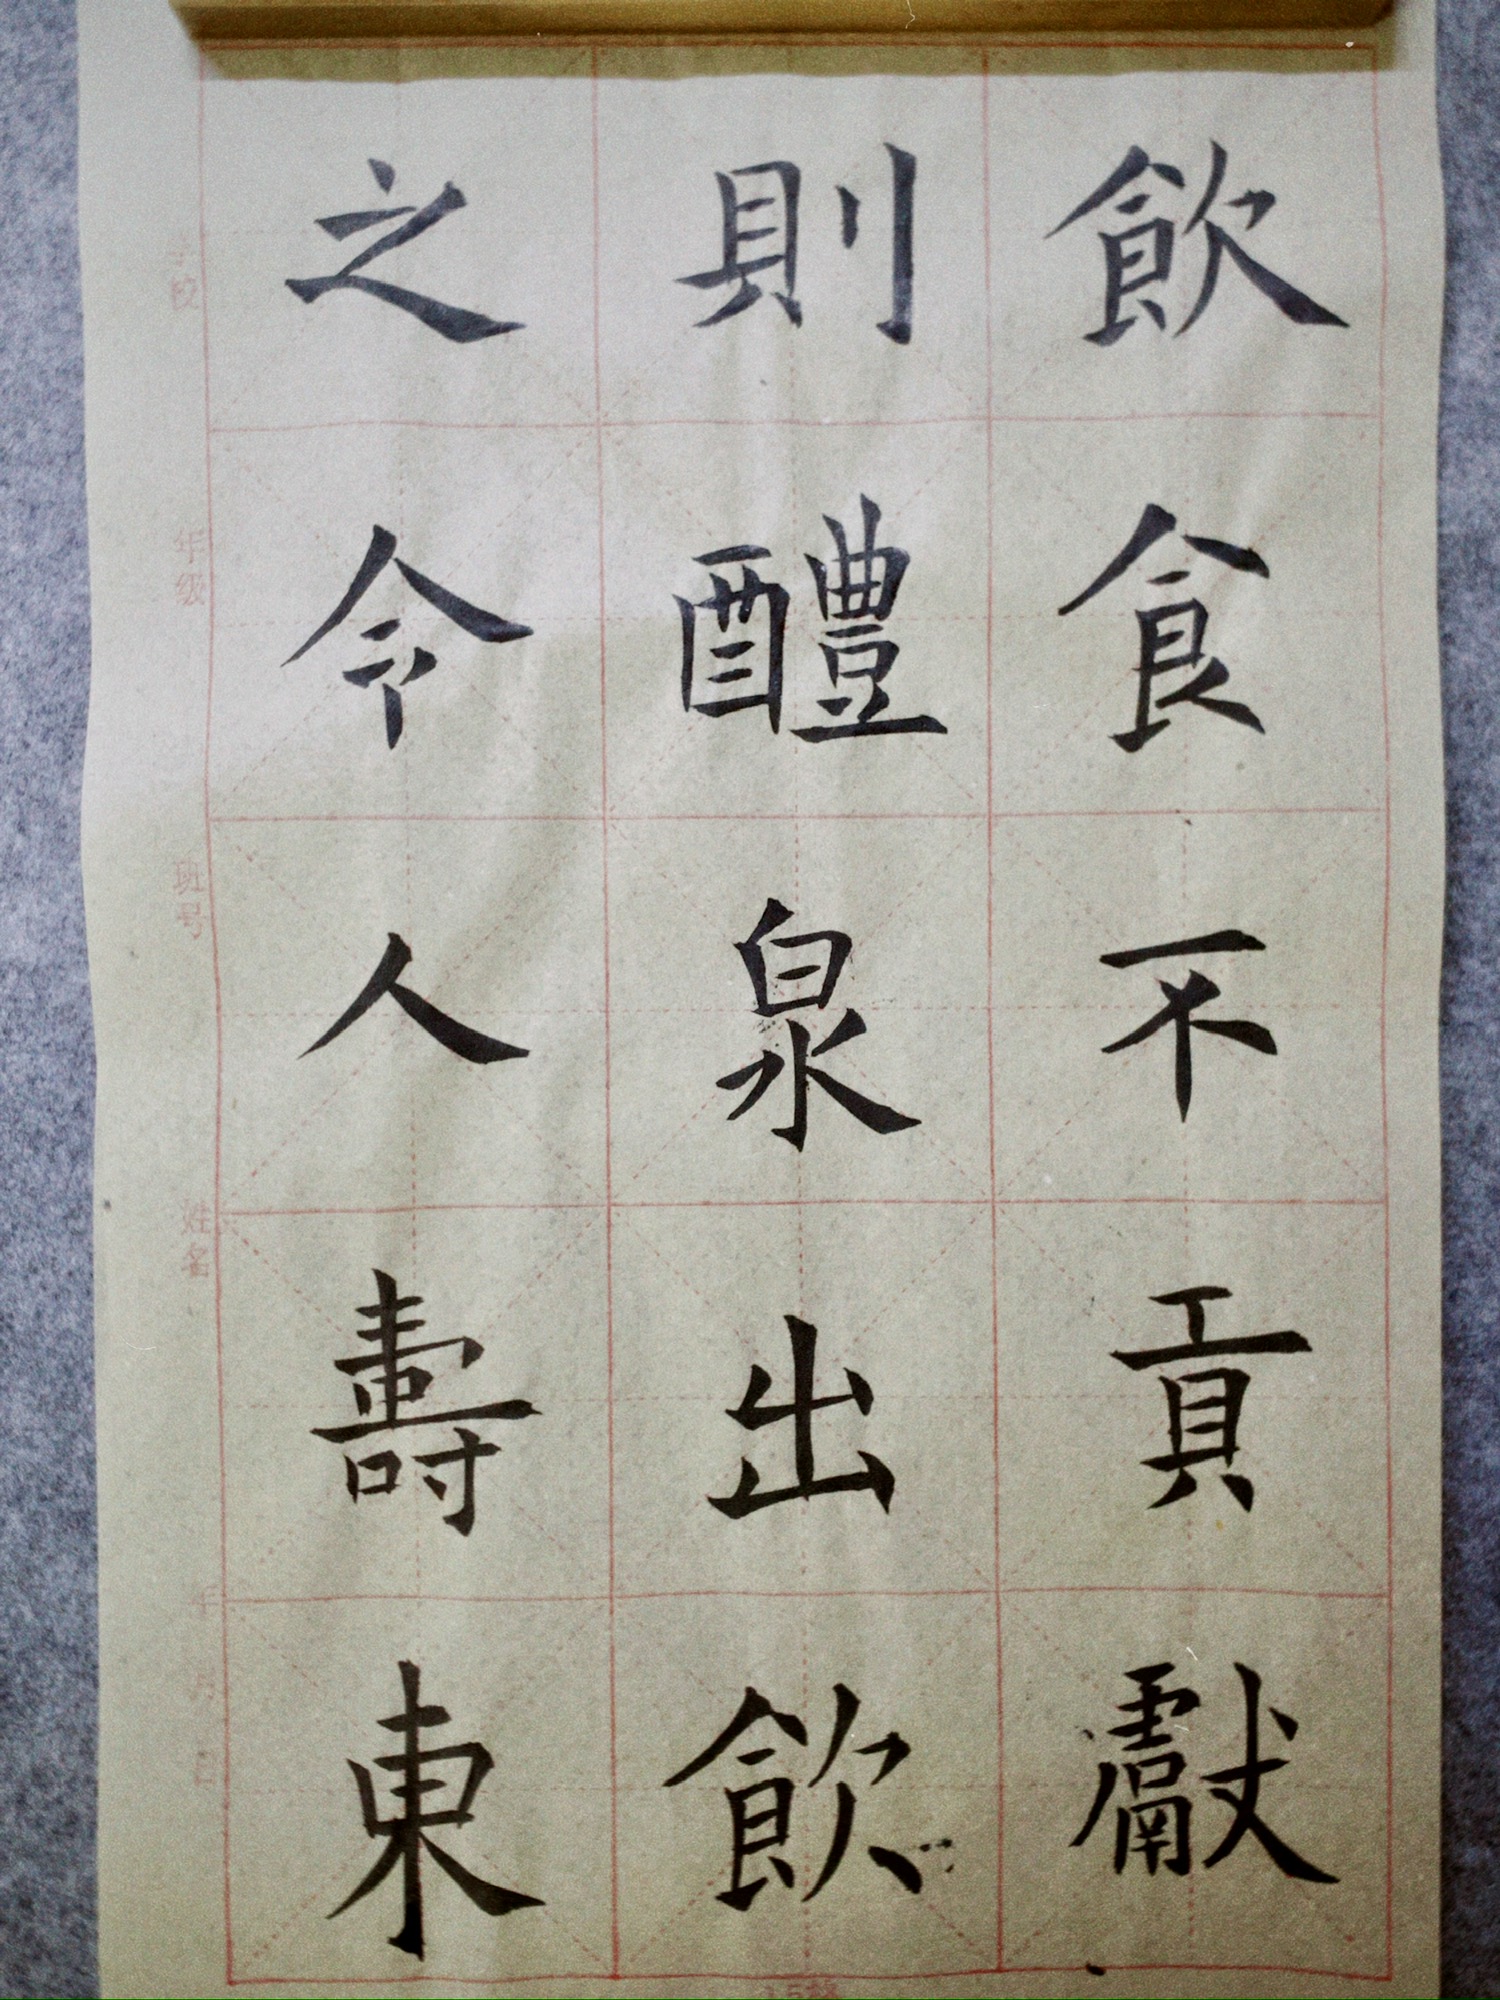 飲食不貢獻
則醴泉出飲
之令人壽東
学校
年级
班号
姓名
年月日
15格